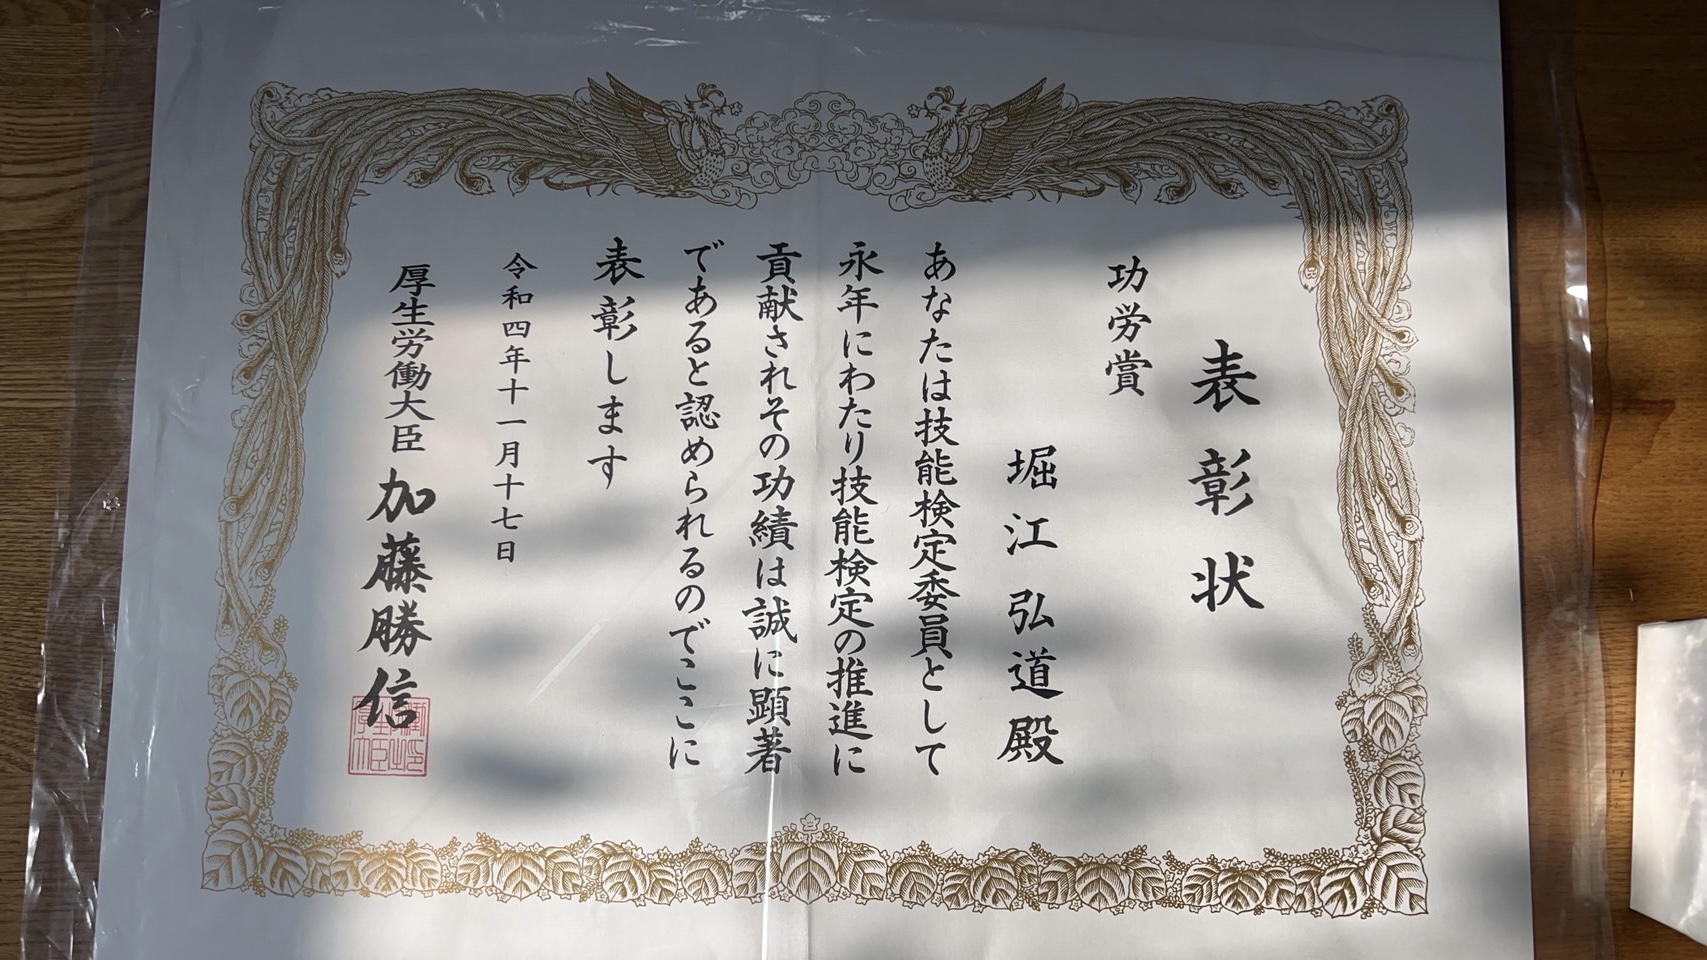 表彰状
功労賞
堀江弘道殿
あなたは技能検定委員として
永年にわたり技能検定の推進に
貢献されその功績は誠に顕著
であると認められるのでここに
表彰します
令和四年十一月十七日
厚生労働大臣 加藤勝信